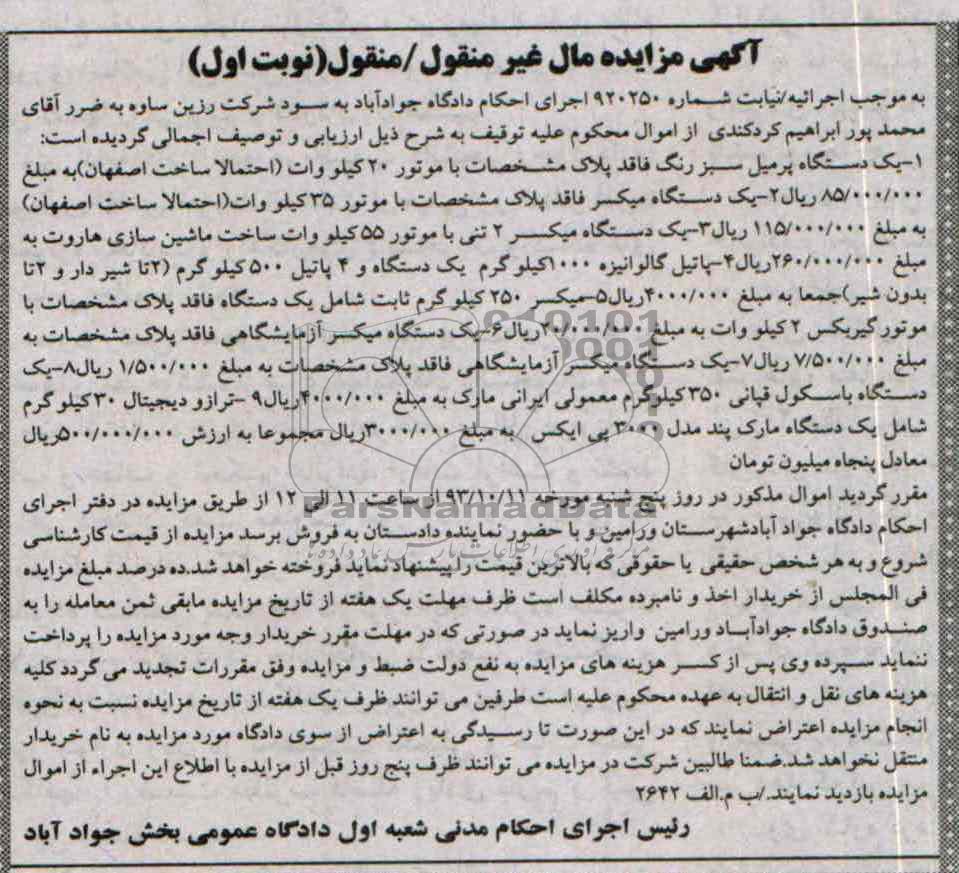 آگهی مزایده مال غیر منقول/منقول(نوبت اول)
به موجب اجرائیه/نیابت شماره ۹۲۰۲۵۰ اجرای احکام دادگاه جوادآباد به سود شرکت رزین ساوه به ضرر آقای
محمد پور ابراهیم کردکندی از اموال محکوم علیه توقیف به شرح ذیل ارزیابی و توصیف اجمالی گردیده است:
۱-یک دستگاه پرمیل سبز رنگ فاقد پلاک مشخصات با موتور ۲۰ کیلو وات (احتمالا ساخت اصفهان)به مبلغ
۸۵/۰۰۰/۰۰۰ ریال۲-یک دستگاه میکسر فاقد پلاک مشخصات با موتور ۳۵ کیلو وات(احتمالا ساخت اصفهان)
به مبلغ ۱۱۵/۰۰۰/۰۰۰ ریال۳-یک دستگاه میکسر ۲ تنی با موتور ۵۵ کیلو وات ساخت ماشین سازی هاروت به
مبلغ ۲۶۰/۰۰۰/۰۰۰ریال۴-پاتیل گالوانیزه ۱۰۰۰کیلو گرم یک دستگاه و ۴ پاتیل ۵۰۰ کیلو گرم (۲تا شیر دار و ۲تا
بدون شیر)جمعا به مبلغ ۴۰۰۰/۰۰۰ریال۵-میکسر ۲۵۰ کیلو گرم ثابت شامل یک دستگاه فاقد پلاک مشخصات با
موتور گیربکس ۲ کیلو وات به مبلغ ۲۰/۰۰۰/۰۰۰ریال۶-یک دستگاه میکسر آزمایشگاهی فاقد پلاک مشخصات به
مبلغ ۷/۵۰۰/۰۰۰ ریال۷-یک دستگاه میکسر آزمایشگاهی فاقد پلاک مشخصات به مبلغ ۱/۵۰۰/۰۰۰ ریال۸-یک
دستگاه باسکول قپانی ۳۵۰ کیلوگرم معمولی ایرانی مارک به مبلغ ۴۰۰۰/۰۰۰ریال۹-ترازو دیجیتال ۳۰کیلو گرم
شامل یک دستگاه مارک پند مدل ۳۰۰۰ پی ایکس به مبلغ ۳۰۰۰/۰۰۰ریال مجموعا به ارزش ۵۰۰/۰۰۰/۰۰۰ریال
معادل پنجاه میلیون تومان
مقرر گردید اموال مذکور در روز پنج شنبه مورخه ۹۳/۱۰/۱۱ از ساعت ۱۱ الی ۱۲ از طریق مزایده در دفتر اجرای
احکام دادگاه جواد آبادشهرستان ورامین و با حضور نماینده دادستان به فروش برسد مزایده از قیمت کارشناسی
شروع و به هر شخص حقیقی یا حقوقی که بالاترین قیمت را پیشنهاد نماید فروخته خواهد شد.ده درصد مبلغ مزایده
فی المجلس از خریدار اخذ و نامبرده مکلف است ظرف مهلت یک هفته از تاریخ مزایده مابقی ثمن معامله را به
صندوق دادگاه جوادآباد ورامین واریز نماید در صورتی که در مهلت مقرر خریدار وجه مورد مزایده را پرداخت
ننماید سپرده وی پس از کسر هزینه های مزایده به نفع دولت ضبط و مزایده وفق مقررات تجدید می گردد کلیه
هزینه های نقل و انتقال به عهده محکوم علیه است طرفین می توانند ظرف یک هفته از تاریخ مزایده نسبت به نحوه
انجام مزایده اعتراض نمایند که در این صورت تا رسیدگی به اعتراض از سوی دادگاه مورد مزایده به نام خریدار
منتقل نخواهد شد.ضمنا طالبین شرکت در مزایده می توانند ظرف پنج روز قبل از مزایده با اطلاع این اجراء از اموال
مزایده بازدید نمایند./ب م.الف ۲۶۴۲
رئیس اجرای احکام مدنی شعبه اول دادگاه عمومی بخش جواد آباد
ParsNamadData